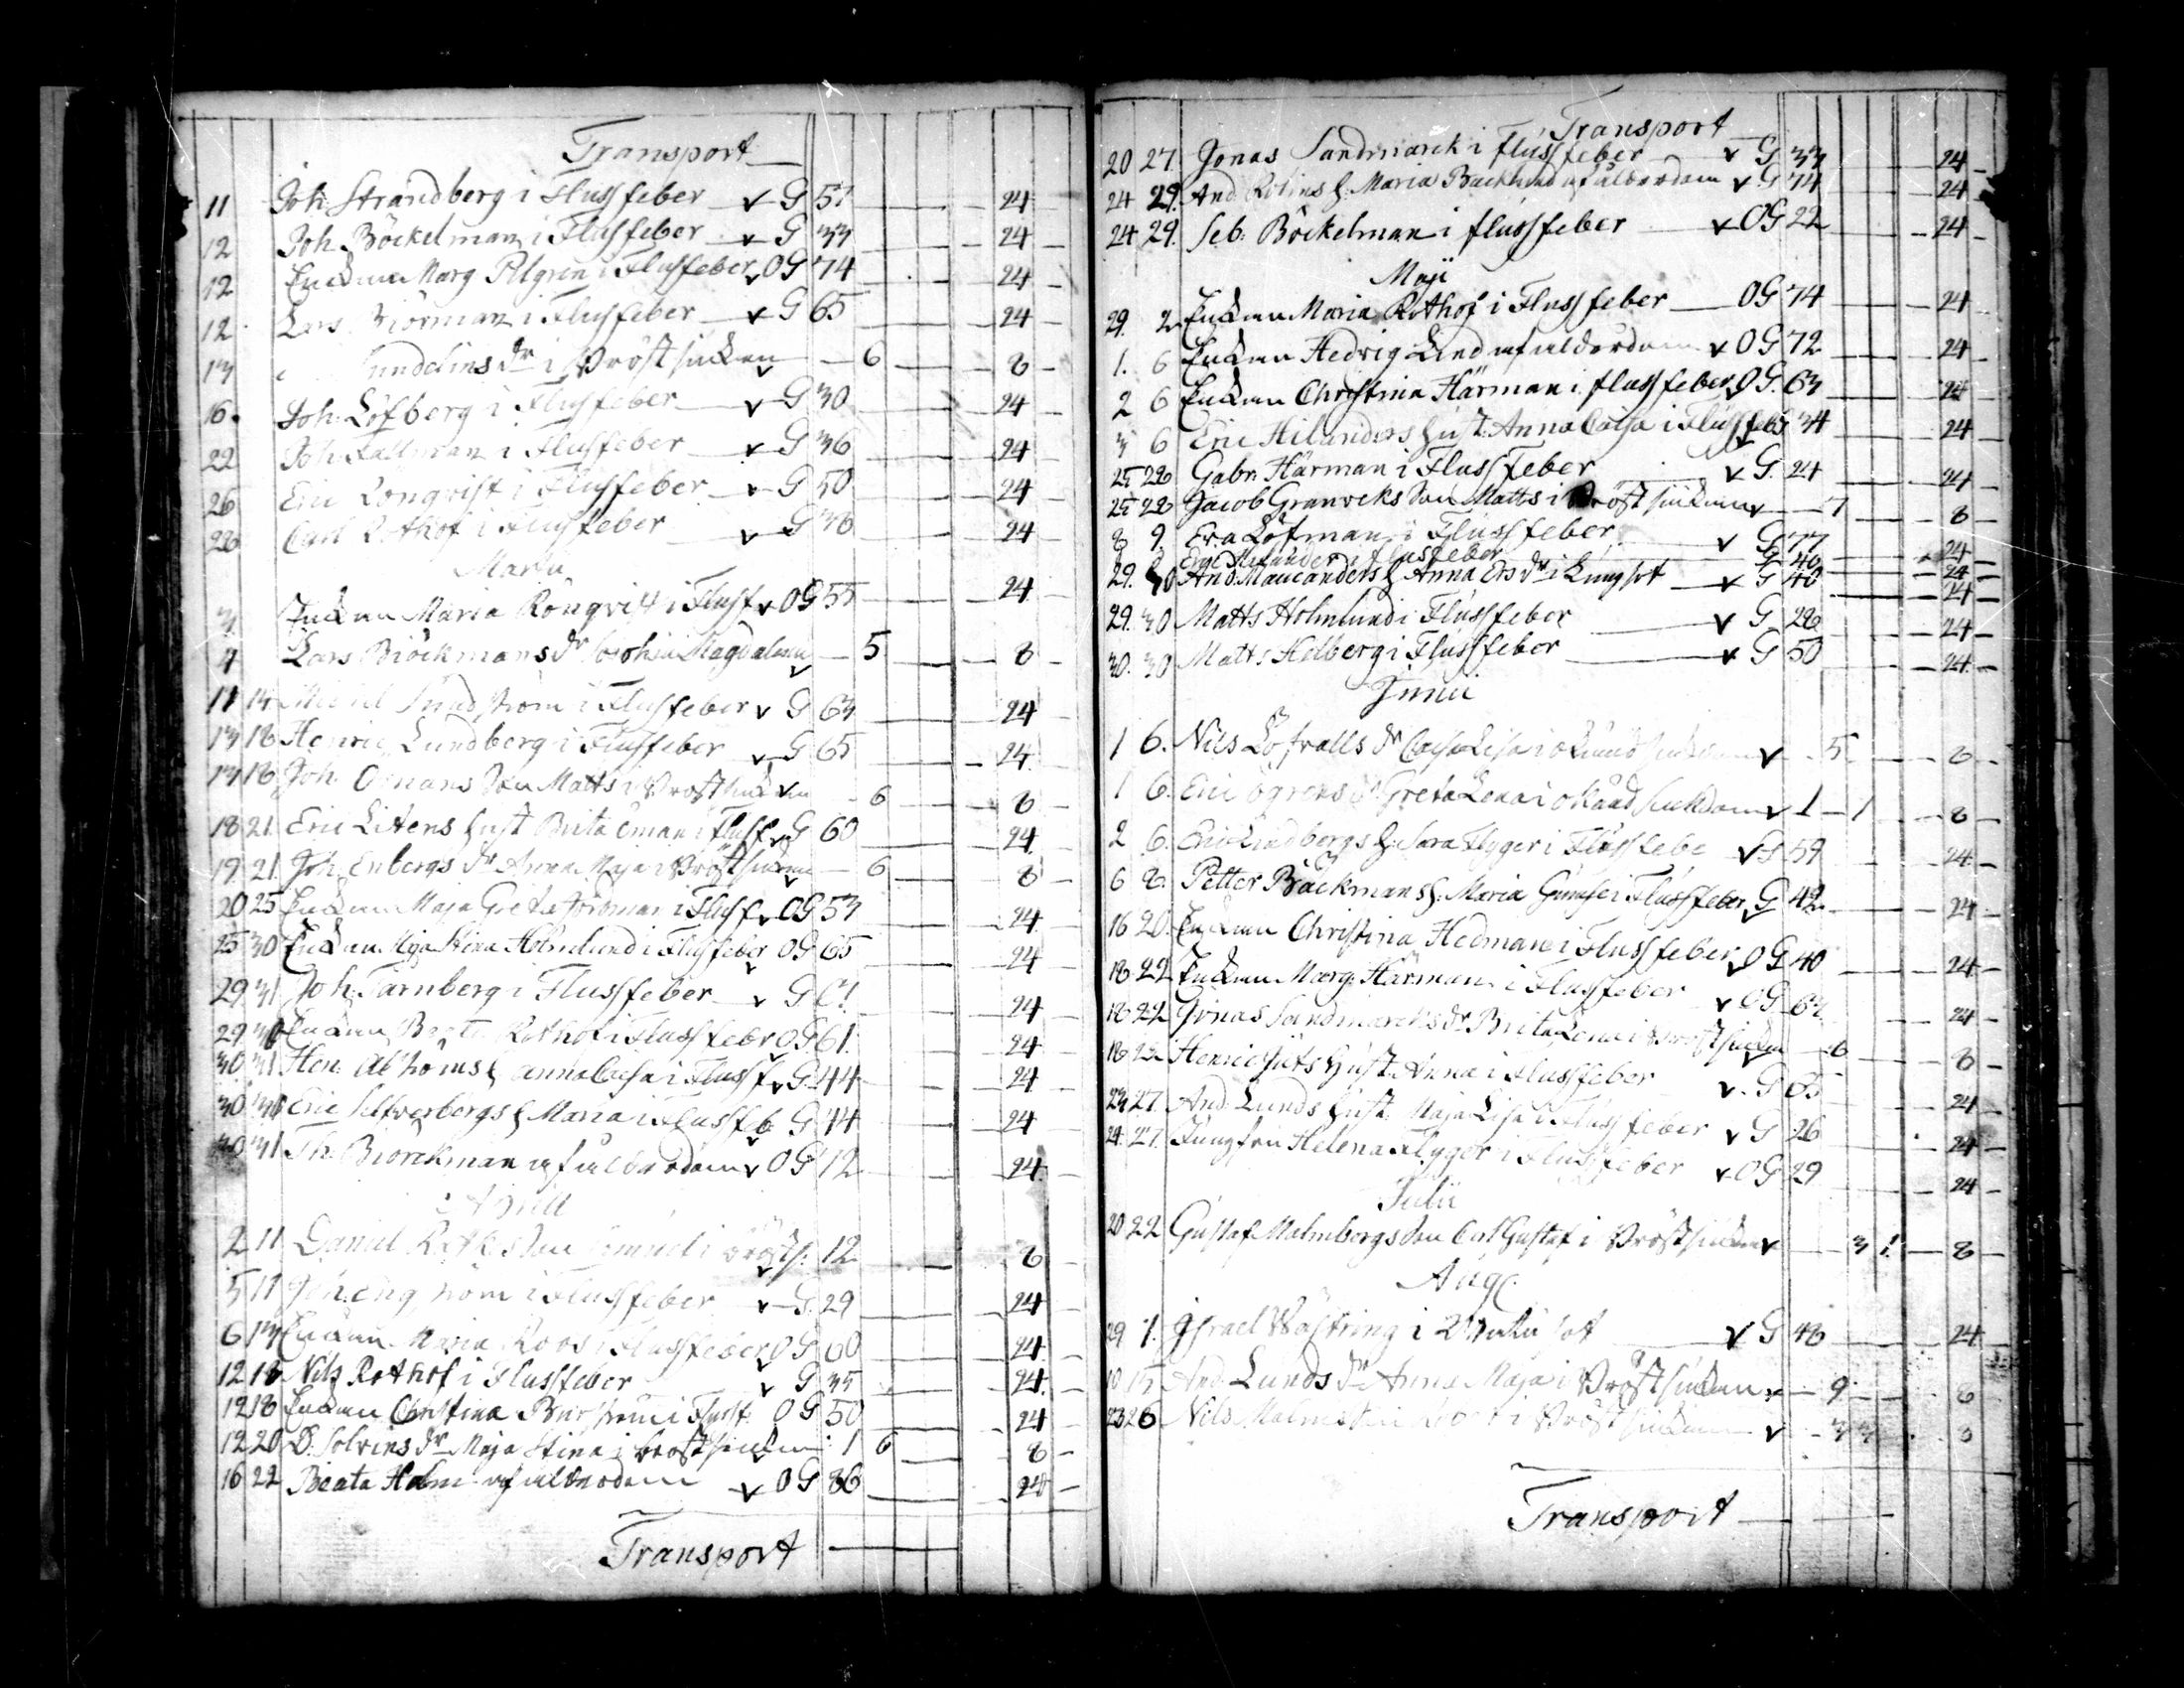 Transport
11 Joh. Strandberg i Flussfeber v G 51 24
12 Joh. Böckelman i Flussfeber v G 33 24
12 Enckan Marg Pilgren i Flussfeber v OG 74 24
12 Lars Biörman i Flussfeber v G 65 24
13 Sundelins dr i Bröstsiukan v 6 8
16. Joh. Löfberg i Flussfeber v G 30 24
22 Joh. Källman i Flussfeber v G 36 24
26 Eric Longvist i Flussfeber v G 50 24
28 Carl Rothof i Flussfeber v G 36 24
Martii
3 Enckan Maria Rönqvist i Flussf v OG 55 24
4 Lars Biöckmans dr Sophia Magdalena v 5 8
11 14 Michel Sundström i Flussfeber v G 63 24
13 18 Henric Lundberg i Flussfeber v G 65 24
13 18 Joh. Ömans Son Matts i Bröstsiukan v 6 8
18 21 Eric Litens Hust Brita Eman i Flussf v G 60 24
19 21 Joh. Enbergs dr Anna Maja i Bröstsiukan v 6 8
20 25 Enckan Maja Greta i Flussf v OG 53 24
25 30 Enckan Maja Stina Holmlund i Flussfeber v OG 65 24
29 31 Joh. Tärnberg i Flussfeber v G 24
29 30 Enckan Rothof i Flussfeber v OG 61 24
30 31 Hen. Ahlströms h Anna Caisa i Flussf v G 44 24
30 31 Eric Silfverbergs h Maria i Flussfeb v G 44 24
30 31 Th. Biörckman af ålderdom v OG 12 24
Aprill
2 11 Daniel Roths Son Samuel i bröstsj. v 12 8
5 11 Joh. Engström i Flussfeber v G. 29 24
6 13 Enckan Maria Roos i Flussfeber v OG 60 24
12 18 Nils Rothof i Flussfeber v G 35 24
12 18 Enckan Christina Burström i Flussf. OG 50 24
12 20 D. Solvins dr Maja Stina i bröstsiukan v 1 6 8
16 22 Beata Holm af ålderdom v OG 86 24
Transport
Transport
20 27 Jonas Sandmarck i Flussfeber v G 33 24
24 29. And. Rolins h. Maria Backlund af ålderdom v G 74 24
24 29. Seb. Böckelman i flussfeber v OG 22 24
Maji
29. 2 Enckan Maria Rothof i Flussfeber OG 74 24
1. 6 Enckan Hedvig Lind af ålderdom v OG 72 24
2 6 Enckan Christina Härman i flussfeber v OG. 63 24
3 6 Eric Hilanders hust. Anna Caisa i Flussfeb G 34 24
25 28 Gabr. Härman i Flussfeber v G. 24 24
25 28 Jacob Granveks Son Matts i Bröstsiukan v 7 8
8 9. Eva Löfman i Flussfeber v G 77 24
Eric Melander i flussfeber G 40 24
29. 30 And. Maucanders h Anna Ers dr i Lungsot v G 40 24
29. 30 Matts Holmlund i Flussfeber v G 28 24
30. 30 Matts Helberg i Flussfeber v G 50 24
Junii
1 6. Nils Löfvalls dr Caisa Lisa i okänd siukdom v 5 8
1 6. Eric Ögrens dr Greta Lena i okänd siukdom v 1 1 8
2 6. Eric Lindbergs h. Sara Flyger i Flussfebe v G 59 24
6 8. Petter Bäckmans h. Maria i Flussfeber v G 42 24
16 20. Enckan Christina Hedman i Flussfeber v OG 40 24
18 22 Enckan Marg. Härman i Flussfeber v OG 63 24
18 22 Jonas Sandmarcks dr Brita Lena i bröstsiukan v 6 8
18 22 Henric Hust. Anna i Flussfeber v G 65 24
23 27. And. Lunds hust. Maja Lisa i Flussfeber v G 26 24
24. 27. Jungfrun Helena Flyger i Flussfeber v OG 29 24
Julii
20 22 Gustaf Malmbergs Son Carl Gustaf i Bröstsiukan v 3 1 8
Aug.
29 1. Israel Wästring i sot v G 48 24
10 15 And. Lunds dr Anna Maja i Bröstsiukan v 9 8
23 26 Nils Malms Son i Bröstsiukan v 3 3 8
Transport